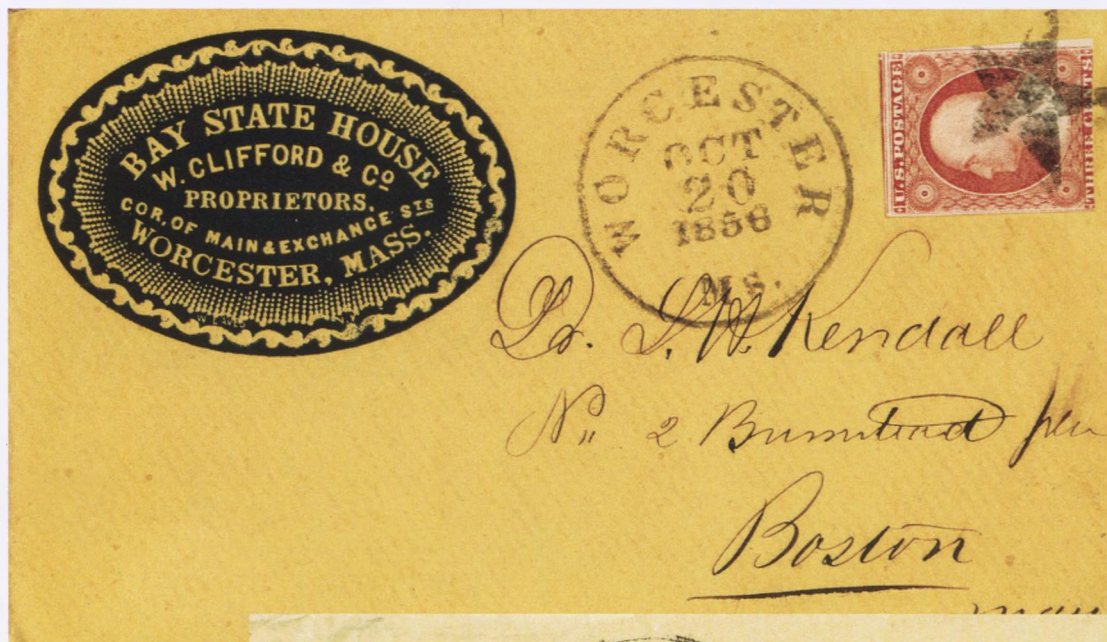 BAY STATE HOUSE
W. CLIFFORD & Cº
PROPRIETORS.
COR. OF MAIN & EXCHANGE STS
WORCESTER, MASS.
WORCESTER
OCT
20
1856
Ms.
U.S. POSTAGE
THREE CENTS
Dr. S. W. Kendall
No. 2 Bumstead
Boston